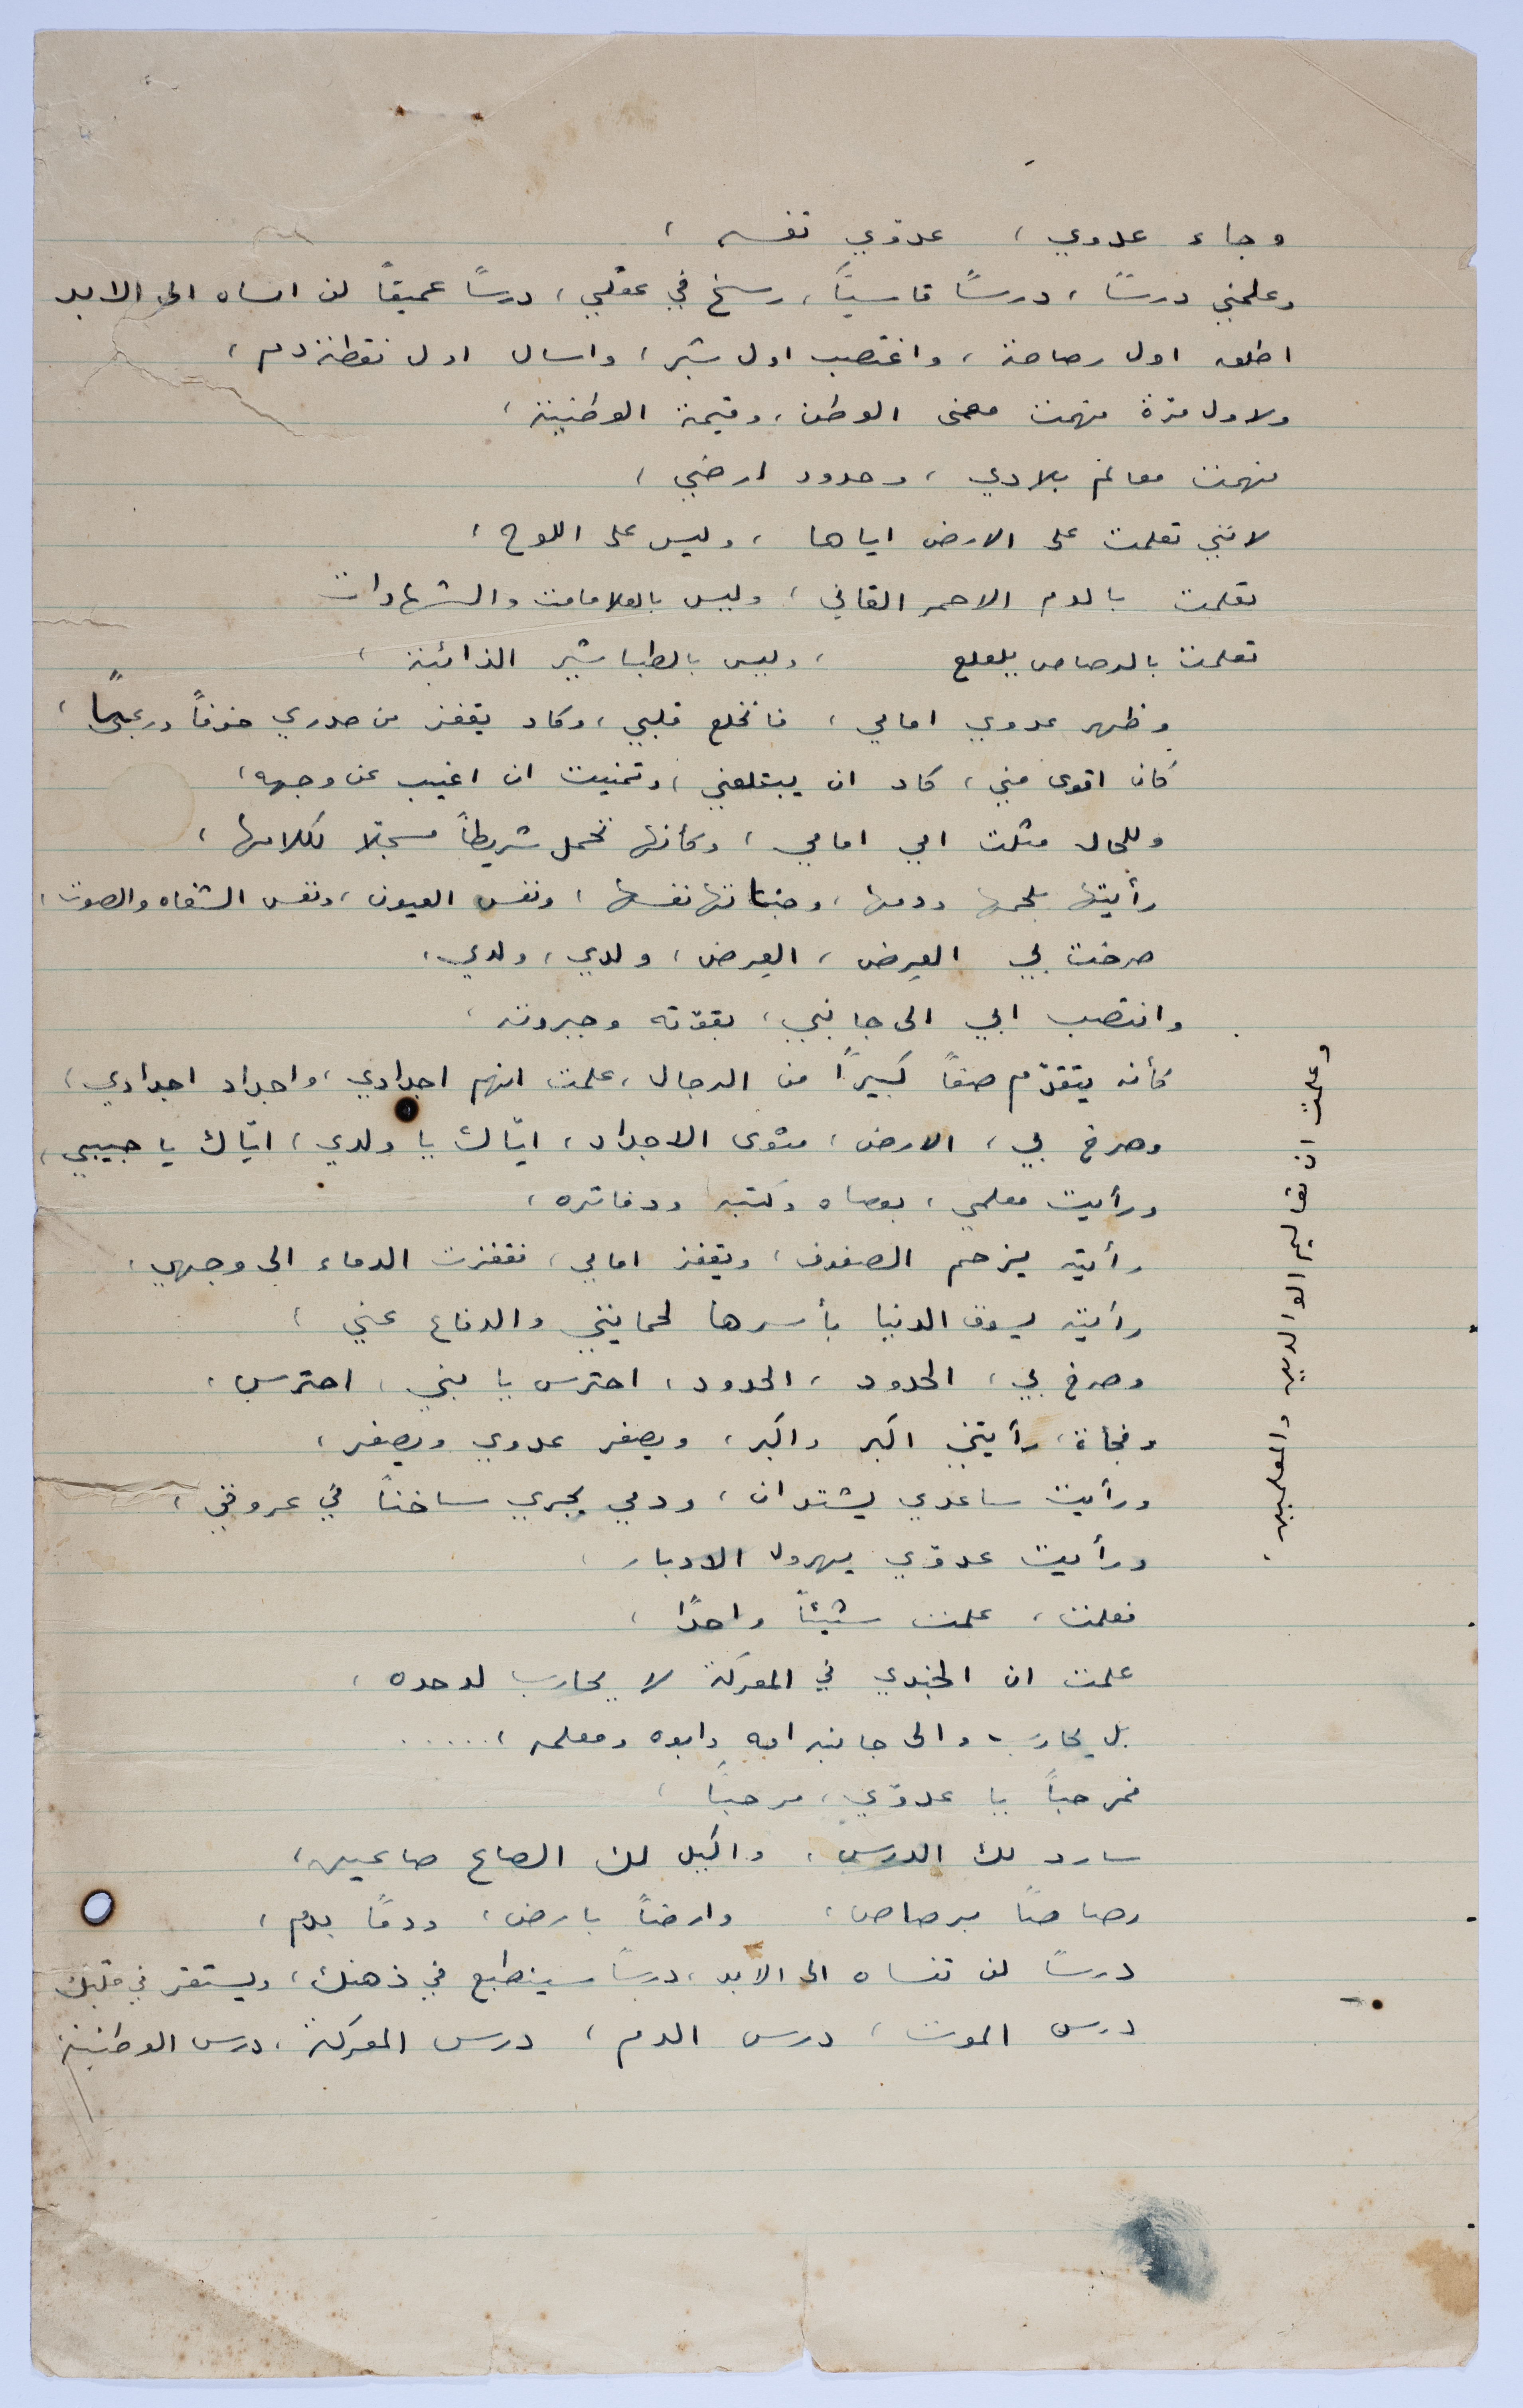 وجاء عدوي ، عدوّي نفسه ،
وعلمني درسًا ، درسًا قاسيًا ، رسخ في عقلي ، درسًا عميقًا لن انساه الى الابد
اطلق اول رصاصة ، واغتصب اول شبر ، واسال اول نقطة دم ،
ولاول مرّة فهمت معنى الوطن ، وقيمة الوطنية ،
فهمت معالم بلادي ، وحدود ارضي ،
لانني تعلمت على الارض اياها ، وليس على اللوح ،
تعلمت بالدم الاحمر القاني ، وليس بالعلامات والشهادات
تعلمت بالرصاص يلعلع ، وليس بالطباشير الذائبة ،
وظهر عدوي امامي ، فانخلع قلبي ، وكاد يقفز من صدري خوفًا ورعبًا ،
كان اقوى مني ، كاد ان يبتلعني ، وتمنيت ان اغيب عن وجهه ،
وللحال مثلت امي امامي ، وكأنها تحمل شريطًا مسجلا لكلامها ،
رأيتها بلحمها ودمها ، وحناتها نفسها ، ونفس العيون ، ونفس الشفاه والصوت ،
صرخت بي العِرض ، العِرض ، ولدي ، ولدي ،
وانتصب ابي الى جانبي ، بقوّته وجبروته ،
كأنه يتقدّم صفًا كبيرًا من الرجال ، علمت انهم اجدادي ، واجداد اجدادي ،
وصرخ بي ، الارض ، مثوى الاجداد ، ايّاك يا ولدي ، ايّاك يا حبيبي ،
ورأيت معلمي ، بعصاه وكتبه ودفاتره ،
رأيته يزحم الصفوف ، ويقفز امامي ، فقفزت الدماء الى وجهي ،
رأيته يسوق الدنيا بأسرها لحمايتي والدفاع عني ،
وصرخ بي ، الحدود ، الحدود ، احترس يا بني ، احترس ،
وفجأة ، رأيتني اكبر واكبر ، ويصغر عدوي ويصغر ،
ورأيت ساعدي يشتدان ، ودمي يجري ساخنًا في عروقي ،
ورأيت عدوّي يهرول الادبار ،
فعلمت ، علمت شيئًا واحدًا ،
علمت ان الجندي في المعركة لا يحارب لوحده ،
بل يحارب والى جانبه امه وابوه ومعلمه ، .....
فمرحبًا يا عدوّي ، مرحبًا ،
سارد لك الدرس ، واكيل لك الصاع صاعين ،
رصاصًا برصاص ، وارضًا بارض ، ودمًا بدم ،
درسًا لن تنساه الى الابد ، درسًا سينطبع في ذهنك ، ويستقر في قلبك
درس الموت ، درس الدم ، درس المعركة ، درس الوطنية
وعلمت ان تعاليم الوالدين والمعلمين .